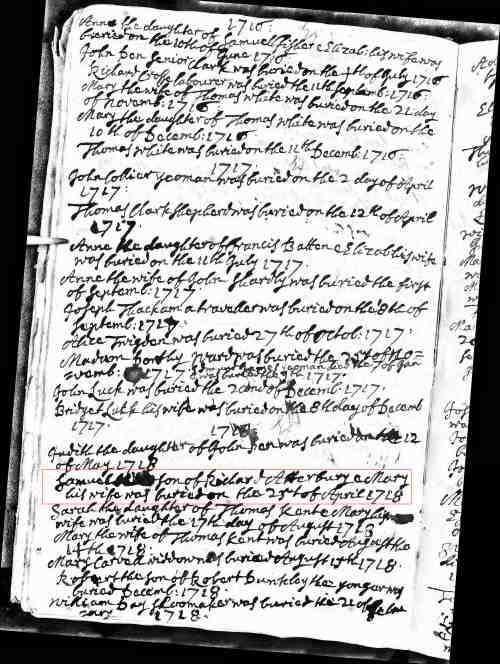 1716:
Anne the daughter of Samuel Fisher & Elizab: his wife was
buried on the 10th of June 1716.
John Pen senior Clark was buried on the 4th of July 1716
Richard labourer was buried the 11th Septemb: 1716.
Mary the wife of Thomas white was buried on the 21 day
of Novemb: 1716
Mary the daughter of Thomas white was buried on the
10th of Decemb: 1716.
Thomas white was buried on the 11th Decemb: 1716.
1717.
John Collier yeoman was buried on the 2 day of April
1717.
Thomas Clark Shepherd was buried on the 12th of April
1717.
Anne the daughter of Francis Batten & Elizab: his wife
was buried on the 11th July 1717.
Anne the wife of John was buried the first
of Septemb: 1717.
Joseph Thackam a traveller was buried on the 8th of
Septemb: 1717.
Alice Twigden was buried 27th of Octob: 1717.
Madron Ward was buried the of No=
vemb: 1717 yeoman
John Luck was buried the 22nd of Decemb: 1717.
Bridget Luck his wife was buried on the 8th day of Decemb
1717.
1718
Judith the daughter of John Pen was buried on the 12
of May 1718
Samuel son of Richard Atterbury & Mary
his wife was buried on the 25th of April 1718
Sarah the daughter of Thomas Kent & Mary his
wife was buried the 17th day of August 1718
Mary the wife of Thomas Kent was buried August the
14th 1718.
Mary widdow was buried August 17th 1718.
Robert the son of Robert Dunkley the yonger was
buried Decemb: 1718.
William Day Shoomaker was buried the 21 of Febru
1718.